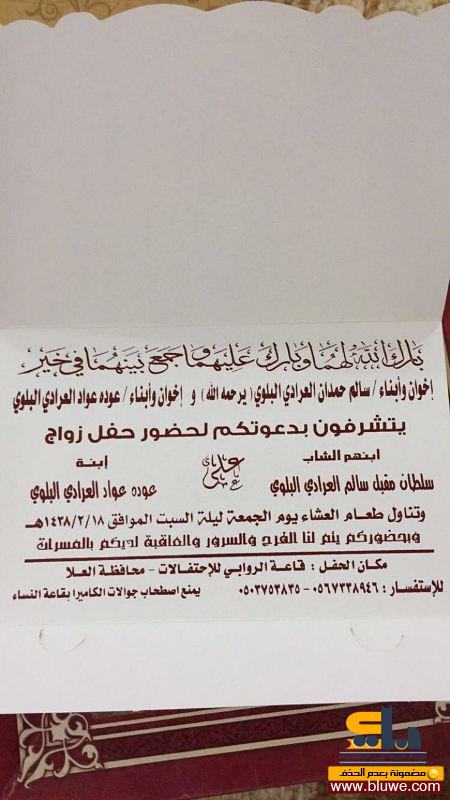 بارك الله لهما وبارك عليهما وجمع بينهما في خير
إخوان وأبناء / سالم حمدان العرادي البلوي ( يرحمه الله ) و إخوان وأبناء / عوده عواد العرادي البلوي
يتشرفون بدعوتكم لحضور حفل زواج
ابنهم الشاب
إبنة
سلطان مقبل سالم العرادي البلوي
على
عوده عواد العرادي البلوي
وتناول طعام العشاء يوم الجمعة ليلة السبت الموافق ١٤٣٨/٢/١٨هـ
وبحضوركم يتم لنا الفرح والسرور والعاقبة لديكم بالمسرات
مكان الحفل : قاعة الروابي للإحتفالات - محافظة العلا
للإستفسار : ٠٥٦٧٣٣٨٩٤٦ - ٠٥٠٣٧٥٣٨٣٥
يمنع اصطحاب جوالات الكاميرا بقاعة النساء
بلوي
مضمونة بعدم الحذف
www.bluwe.com